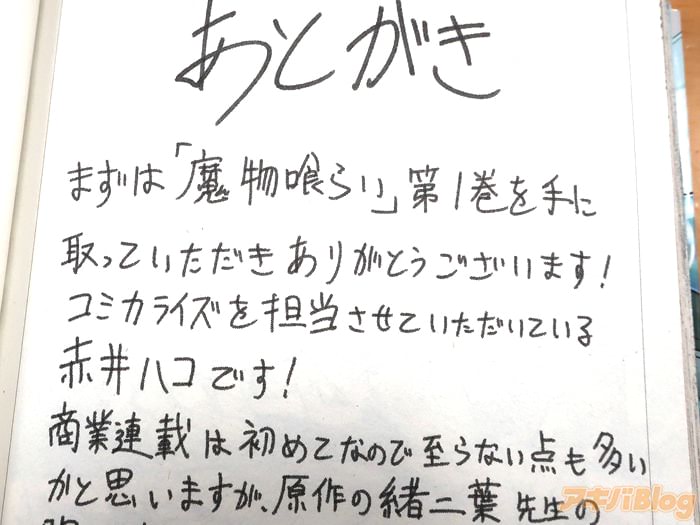 あとがき
まずは「魔物喰らい」第1巻を手に
取っていただきありがとうございます!
コミカライズを担当させていただいている
赤井ハコです!
商業連載は初めてなので至らない点も多い
かと思いますが、原作の緒二葉先生の
アキバBlog